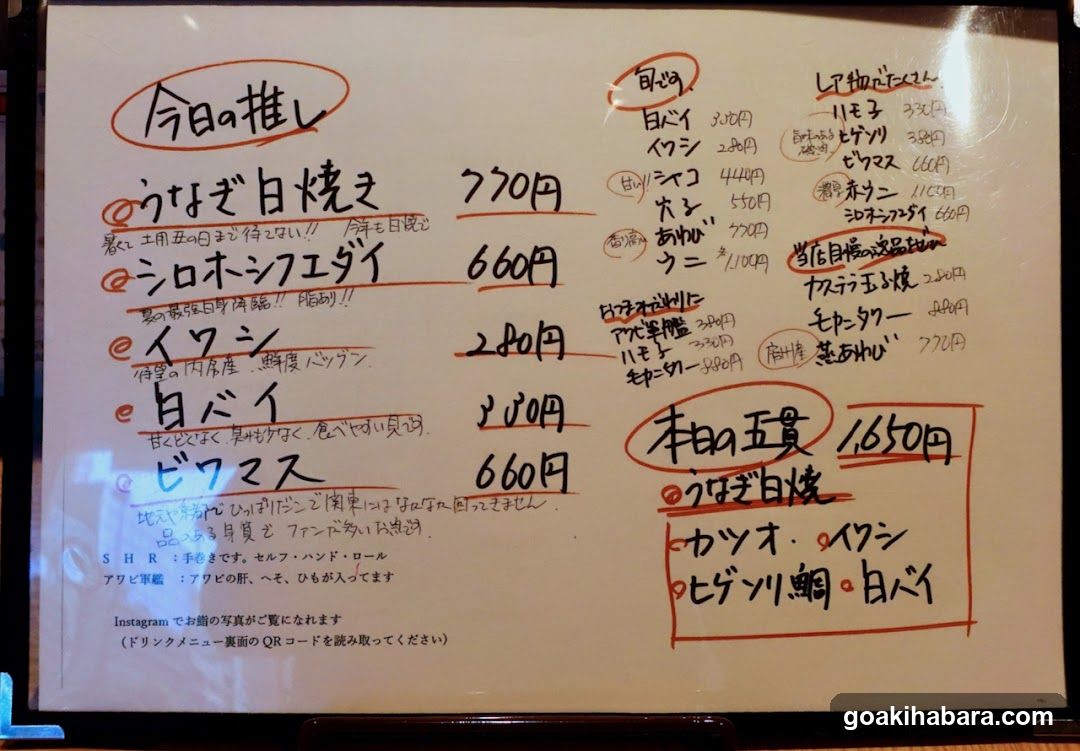 今日の推し
うなぎ白焼き 770円
暑くて土用丑の日まで待てない!! 今年も白焼で
シロホシフエダイ 660円
夏の最強白身降臨!! 脂あり!!
イワシ 280円
待望の内房産 鮮度バツグン
白バイ 330円
甘くどくなく、臭みも少なく、食べやすい貝です
ビワマス 660円
ひっぱりだこで関東にはなかなか回ってきません
品のある身質で ファンが多いお魚です
S H R :手巻きです。セルフ・ハンド・ロール
アワビ軍艦 :アワビの肝、へそ、ひもが入ってます
Instagramでお鮨の写真がご覧になれます
(ドリンクメニュー裏面のQRコードを読み取ってください)
旬です。
白バイ 330円
イワシ 280円
甘い!! シャコ 440円
穴子 550円
あわび 770円
ウニ 1,100円
おつまみがわりに
アワビ軍艦 380円
ハモ子 330円
毛カニタワー 880円
レア物でたくさん
ハモ子 330円
旨味のある ヒゲソリ 380円
ビワマス 660円
濃厚 赤ウニ 1100円
シロホシフエダイ 660円
当店自慢の逸品をぜひ
カステラ玉子焼 280円
毛カニタワー 880円
房州産 蒸あわび 770円
本日の五貫 1,650円
うなぎ白焼
カツオ・イワシ
ヒゲソリ鯛 白バイ
goakihabara.com